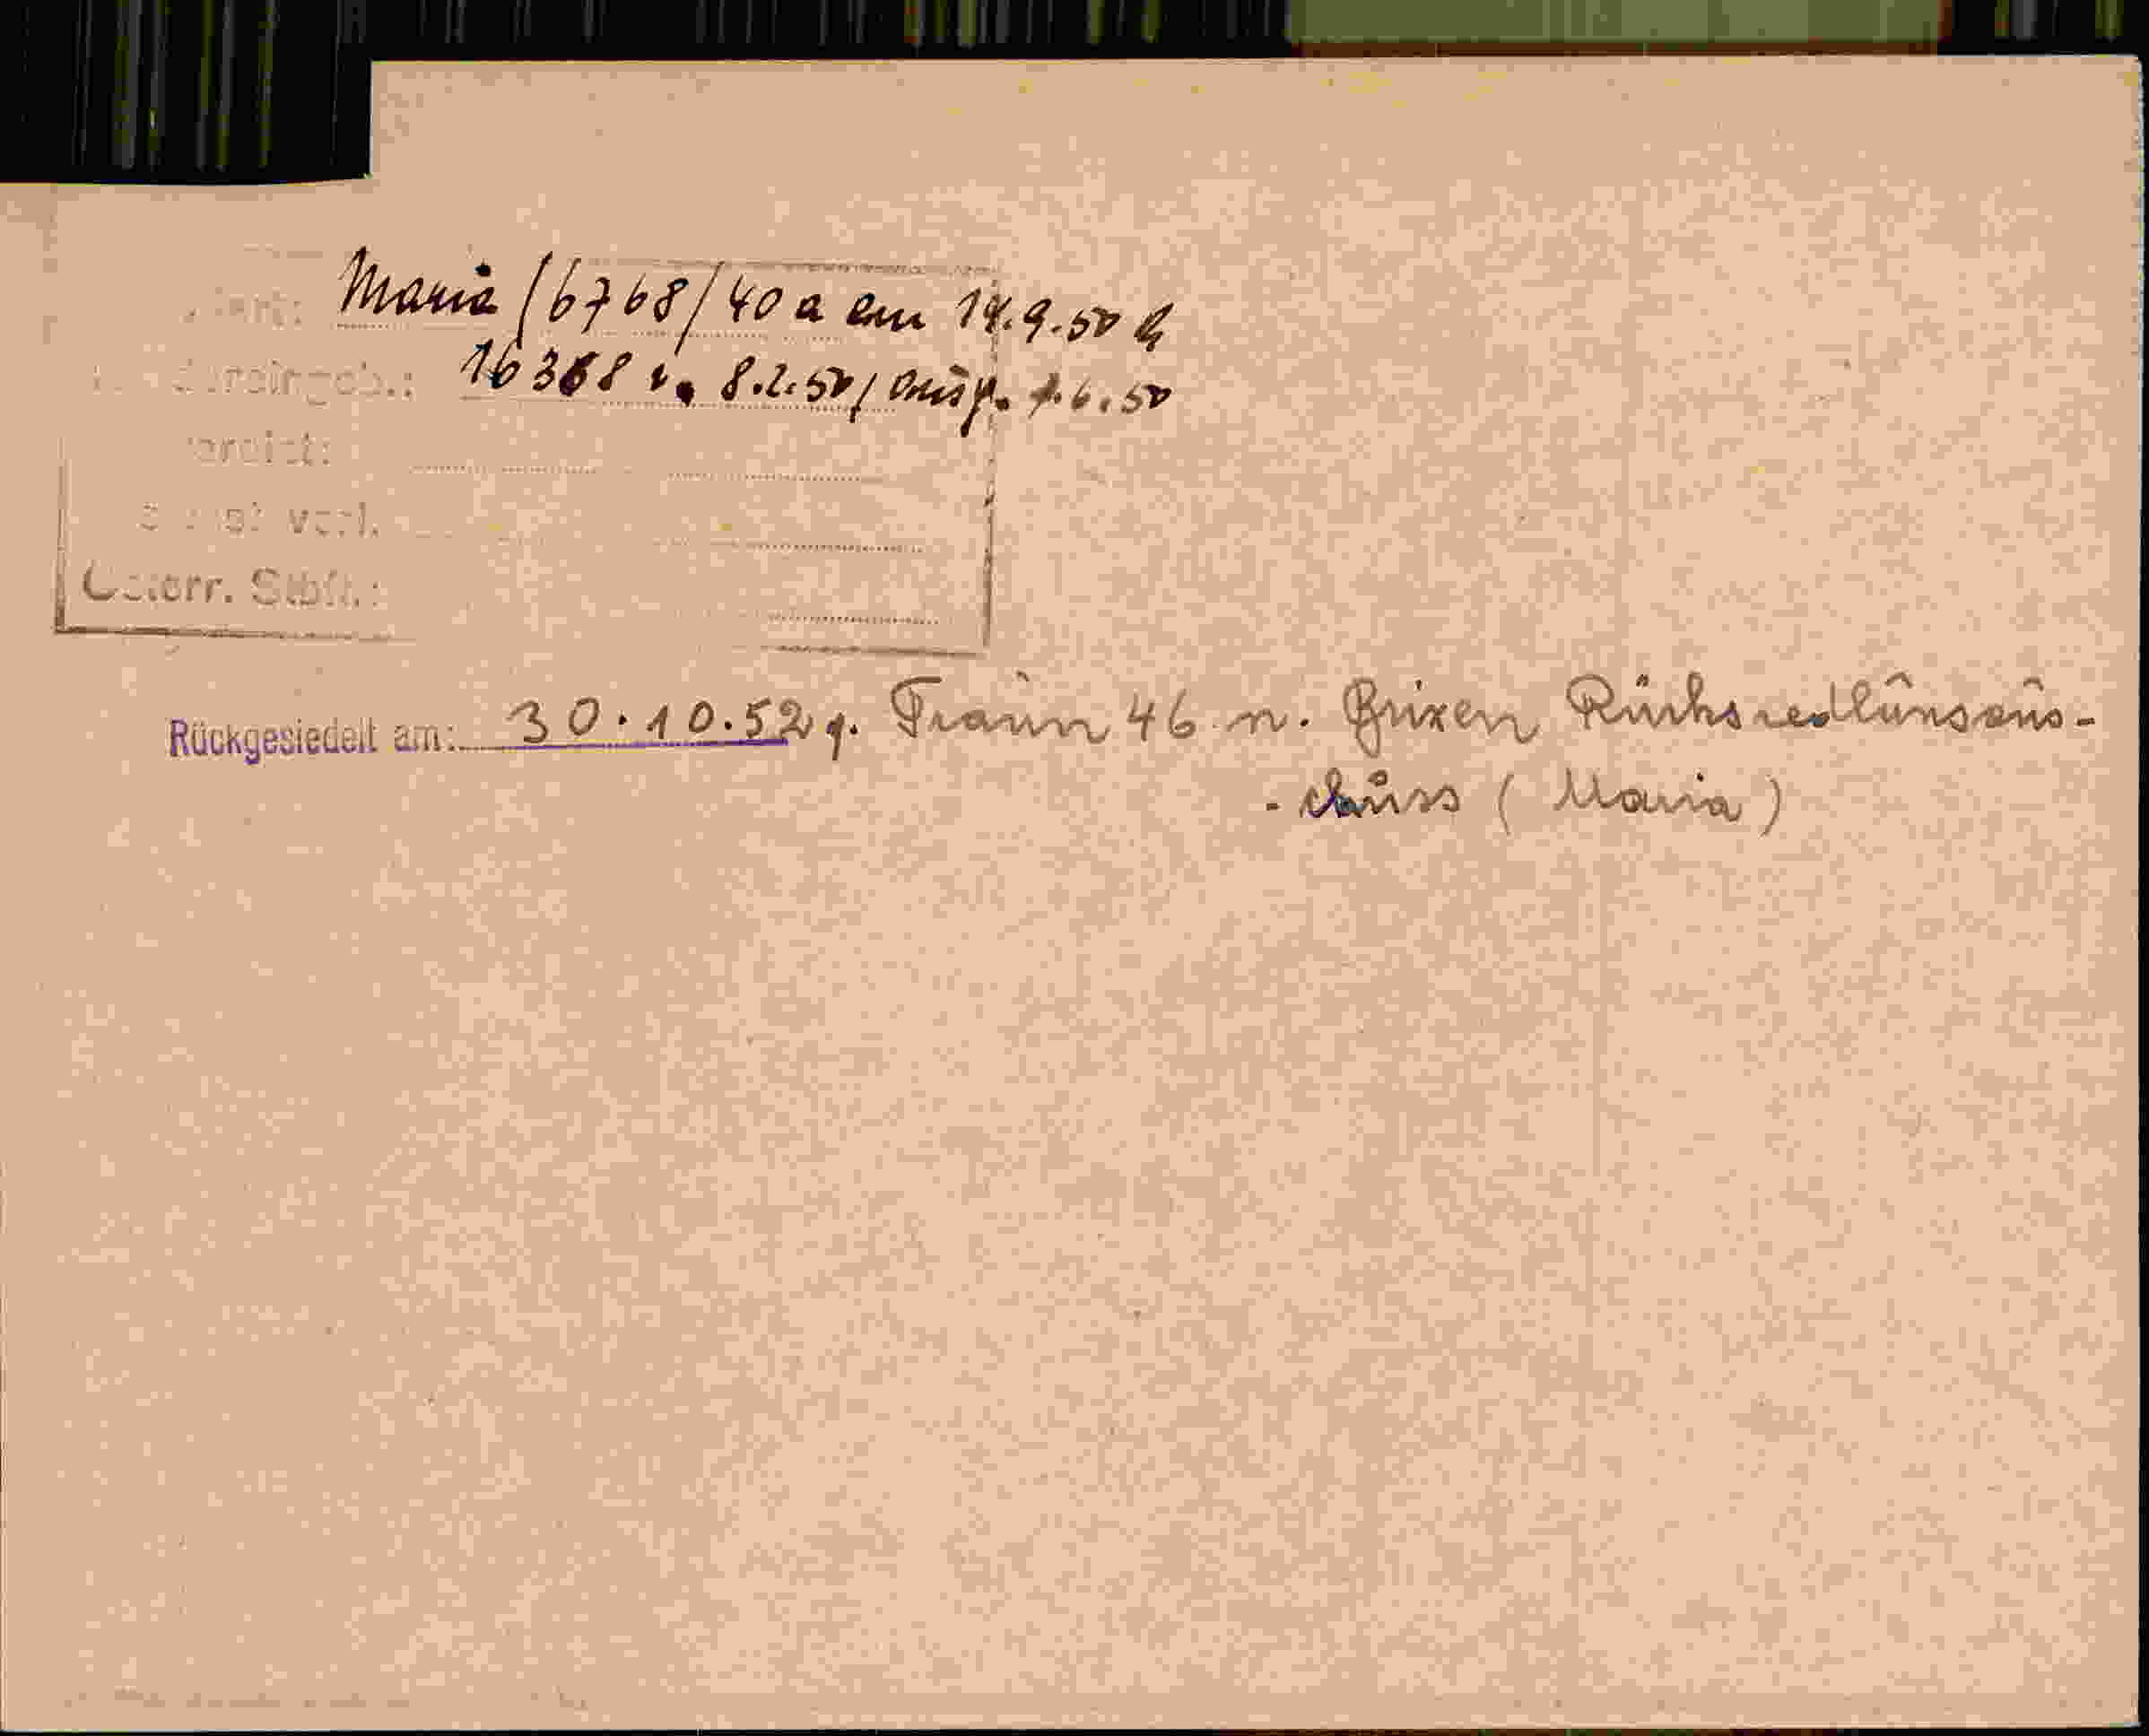 Maria / 6768 / 40 a am 14.9.50
16368 v. 8.2.50 / Ausg. 7.6.50
verl.
Österr. Stbft.:
Rückgesiedelt am: 30.10.52 g. Traun 46 n. Brixen Rücksiedlunsaus-
-chuss ( Maria )